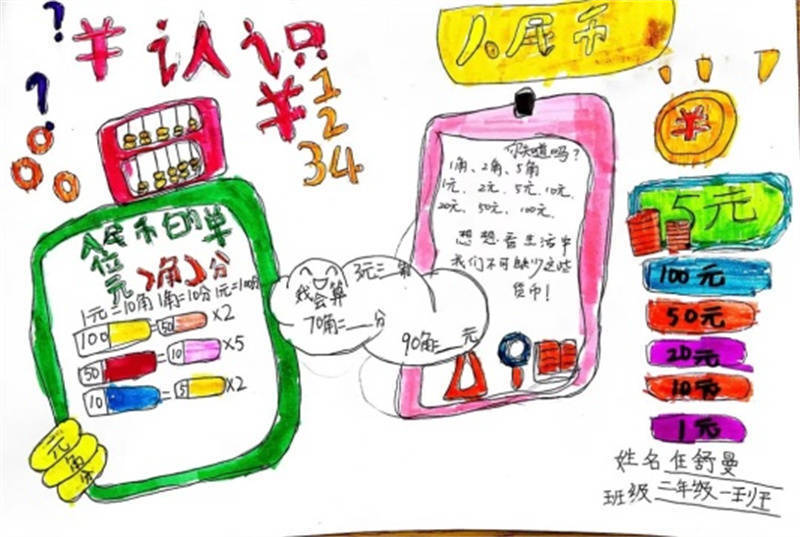 ? ?
¥认识
人民币
¥ 1
2
34
人民币的单
位
元 角 分
1元=10角 1角=10分 1元=100分
100 = 50 ×2
50 = 10 ×5
10 = 5 ×2
元
角
分
我
会算
3元=__角
70角=__分
90角=__元
你知道吗?
1角、2角、5角
1元、2元、5元、10元、
20元、50元、100元、
想想看生活中
我们不可缺少这些
货币!
¥
5元
100元
50元
20元
10元
1元
姓名 任舒曼
班级 二年级一班